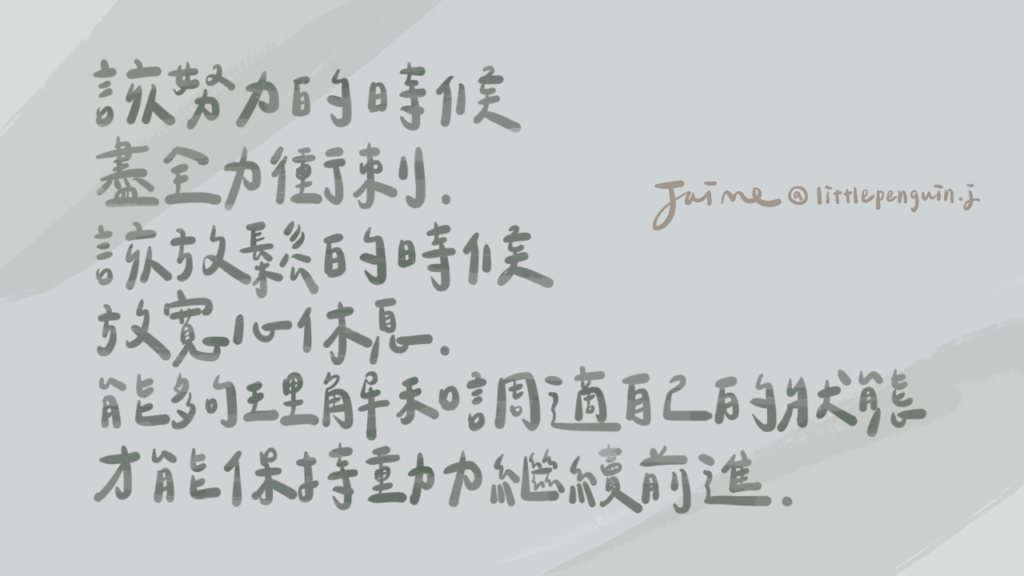 該努力的時候
盡全力衝刺.
該放鬆的時候
放寬心休息.
能夠理解和調適自己的狀態
才能保持動力繼續前進.
Jaine @littlepenguin.j